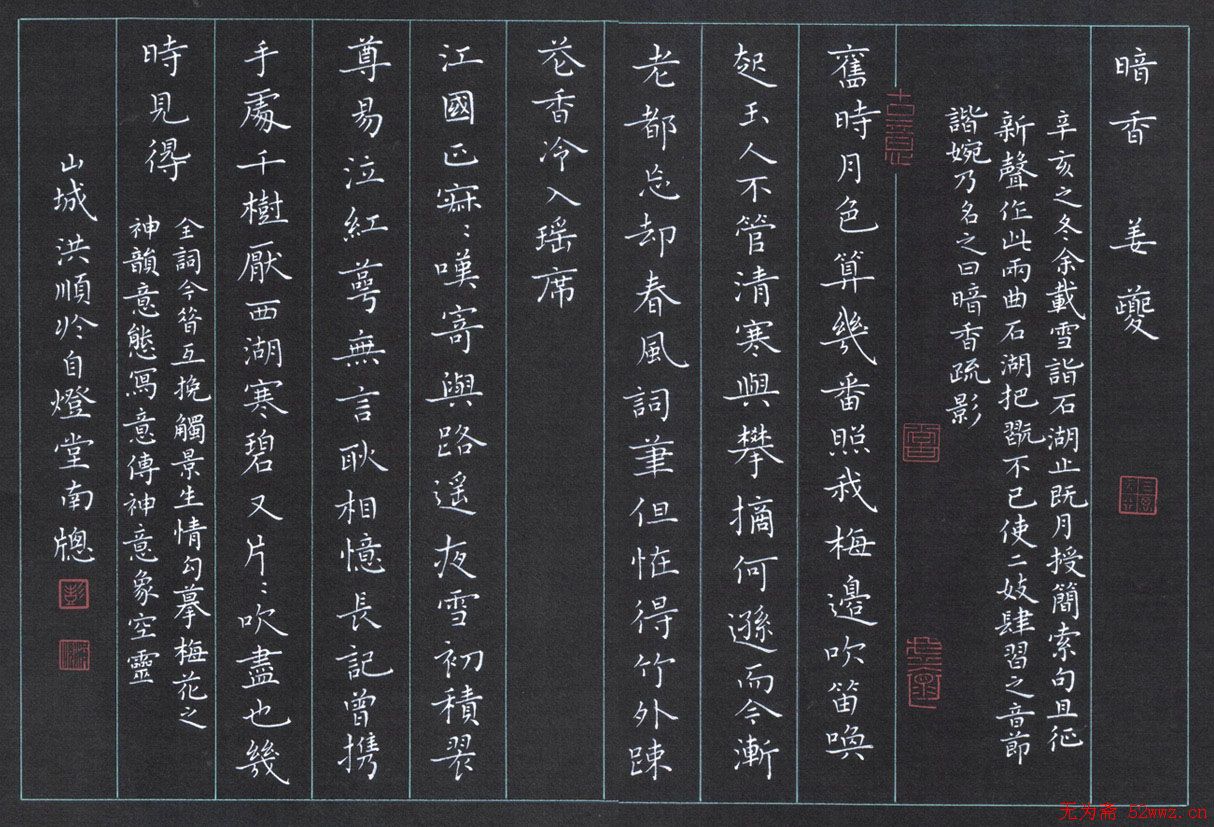 暗香　姜夔
辛亥之冬余載雪詣石湖止既月授簡索句且征
新聲作此兩曲石湖把翫不已使二妓肆習之音節
諧婉乃名之曰暗香疏影
舊時月色算幾番照我梅邊吹笛喚
起玉人不管清寒與攀摘何遜而今漸
老都忘却春風詞筆但恠得竹外踈
花香冷入瑶席
江國正寂:嘆寄與路遥夜雪初積翠
尊易泣紅萼無言耿相憶長記曾携
手處千樹厭西湖寒碧又片:吹盡也幾
時見得
全詞今昝互挽觸景生情勾摹梅花之
神韻意態寫意傳神意象空靈
山城洪順於自燈堂南牕
古意
无为斋 52wwz.cn